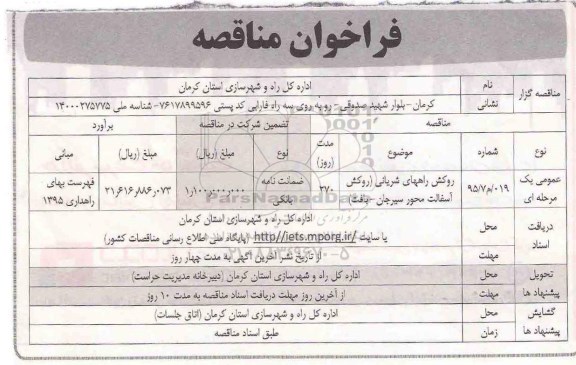 فراخوان مناقصه
مناقصه گزار
نام
اداره کل راه و شهرسازی استان کرمان
نشانی
کرمان - بلوار شهید صدوقی - رو به روی سه راه فارابی کد پستی ۷۶۱۷۸۹۹۵۹۶ - شناسه ملی ۱۴۰۰۰۲۷۵۷۷۵
مناقصه
تضمین شرکت در مناقصه
برآورد
نوع
شماره
موضوع
مدت (روز)
نوع
مبلغ (ریال)
مبلغ (ریال)
مبانی
عمومی یک مرحله ای
۹۵/۷/م/۰۱۹
روکش راههای شریانی (روکش آسفالت محور سیرجان - بافت)
۲۷۰
ضمانت نامه بانکی
۱٫۱۰۰٫۰۰۰٫۰۰۰
۲۱٫۶۱۶٫۸۸۶٫۰۷۳
فهرست بهای راهداری ۱۳۹۵
دریافت اسناد
محل
اداره کل راه و شهرسازی استان کرمان
یا سایت http://iets.mporg.ir/ (پایگاه ملی اطلاع رسانی مناقصات کشور)
مهلت
از تاریخ نشر آخرین آگهی به مدت چهار روز
تحویل پیشنهاد ها
محل
اداره کل راه و شهرسازی استان کرمان (دبیرخانه مدیریت حراست)
مهلت
از آخرین روز مهلت دریافت اسناد مناقصه به مدت ۱۰ روز
گشایش پیشنهاد ها
محل
اداره کل راه و شهرسازی استان کرمان (اتاق جلسات)
زمان
طبق اسناد مناقصه
ParsNamadData